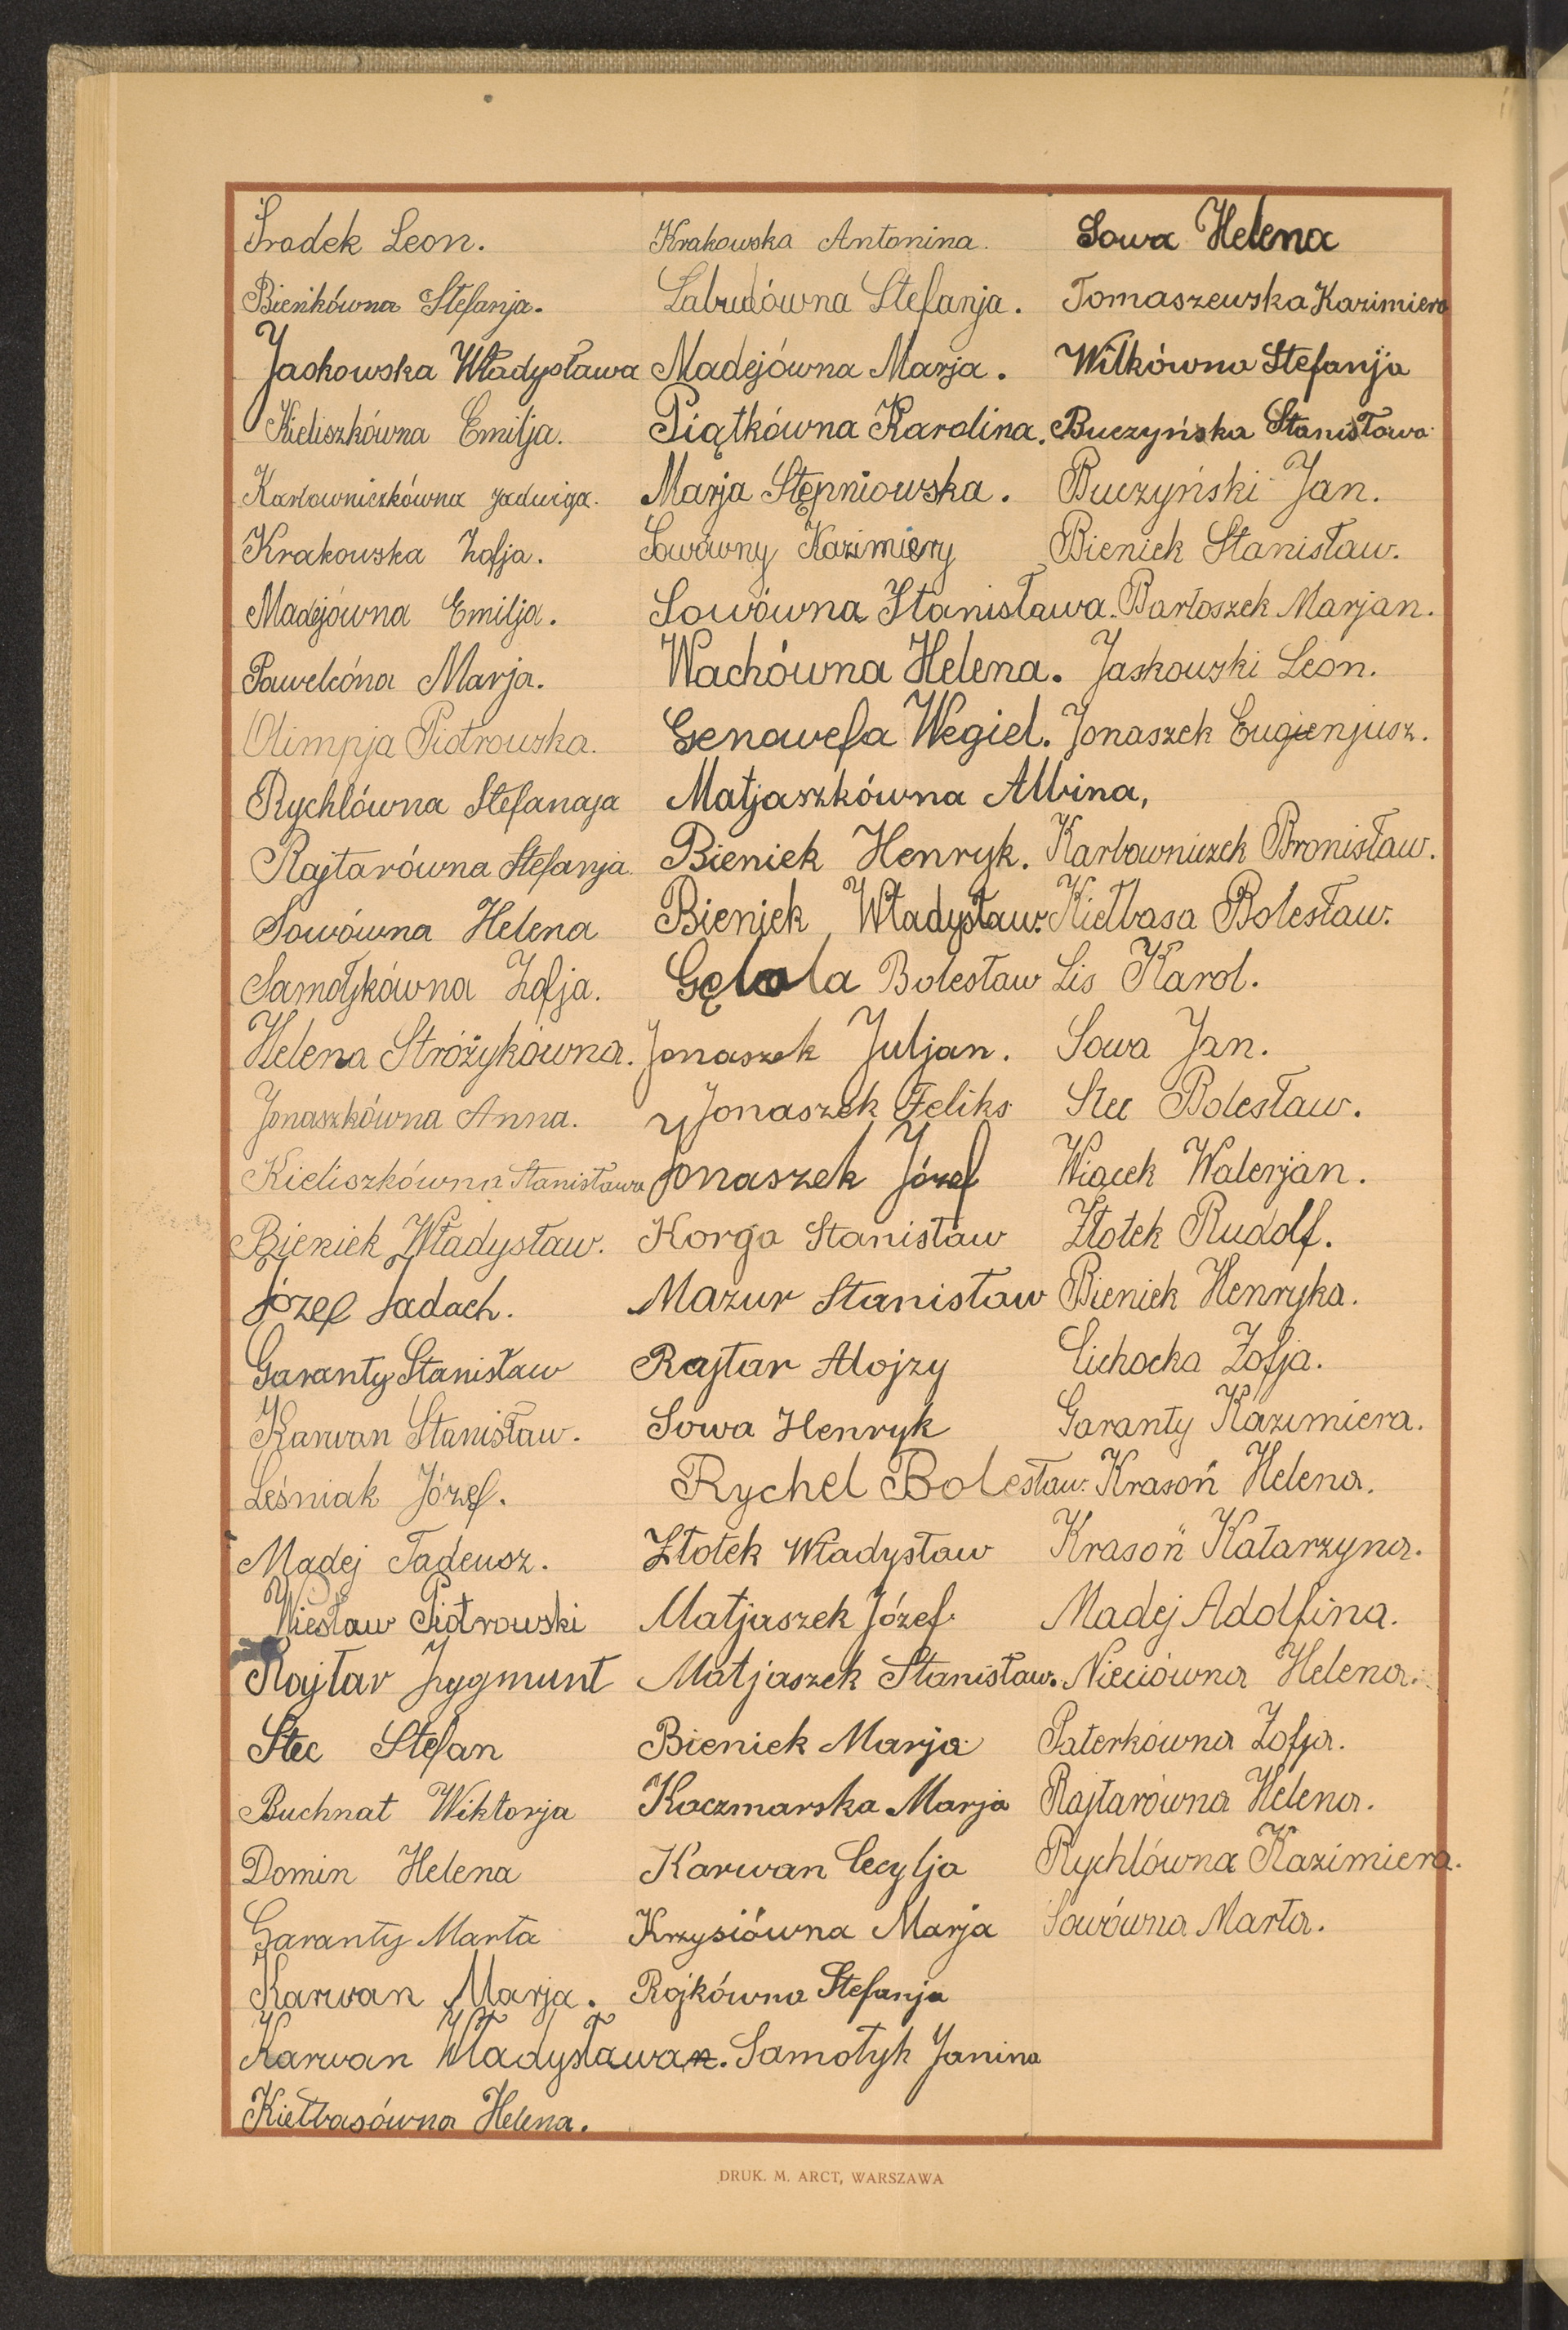 Środek Leon.
Bieńkówna Stefanja.
Jaskowska Władysława
Kieliszkówna Emilja.
Karbowniczkówna Jadwiga.
Krakowska Zofja.
Madejówna Emilja.
Pawelcóna Marja.
Olimpja Piotrowska.
Rychlówna Stefanaja
Rajtarówna Stefanja.
Sowówna Helena
Samołykówna Zofja.
Helena Stróżykówna.
Jonaszkówna Anna.
Kieliszkówna Stanisława
Bieniek Władysław.
Józef Sadach.
Garanty Stanisław
Karwan Stanisław.
Leśniak Józef.
Madej Tadeusz.
Wiesław Piotrowski
Rajtar Zygmunt
Stec Stefan
Buchnat Wiktorja
Domin Helena
Garanty Marta
Karwan Marja.
Karwan Władysława.
Kiełbasówna Helena.
Krakowska Antonina.
Labudówna Stefanja.
Madejówna Marja.
Piątkówna Karolina.
Marja Stępniowska.
Sowówny Kazimiery
Sowówna Stanisława.
Wachówna Helena.
Genowefa Wegiel.
Matjaszkówna Albina,
Bieniek Henryk.
Bieniek Władysław.
Gębala Bolesław
Jonaszek Juljan.
Jonaszek Feliks
Jonaszek Józef
Korga Stanisław
Mazur Stanisław
Rajtar Alojzy
Sowa Henryk
Rychel Bolesław.
Złotek Władysław
Matjaszek Józef
Matjaszek Stanisław.
Bieniek Marja
Kaczmarska Marja
Karwan Cecylja
Krzysiówna Marja
Rojkówna Stefanja
Samołyk Janina
Sowa Helena
Tomaszewska Kazimiera
Wilkówna Stefanja
Buczyńska Stanisława
Buczyński Jan.
Bieniek Stanisław.
Bartoszek Marjan.
Jaskowski Leon.
Jonaszek Eugienjusz.
Karbowniczek Bronisław.
Kiełbasa Bolesław.
Lis Karol.
Sowa Jan.
Stec Bolesław.
Wiącek Walerjan.
Złotek Rudolf.
Bieniek Henryka.
Cichocka Zofja.
Garanty Kazimiera.
Krasoń Helena.
Krasoń Katarzyna.
Madej Adolfina.
Nieciówna Helena.
Paterkówna Zofja.
Rajtarówna Helena.
Rychlówna Kazimiera.
Sowówna Marta.
DRUK. M. ARCT, WARSZAWA